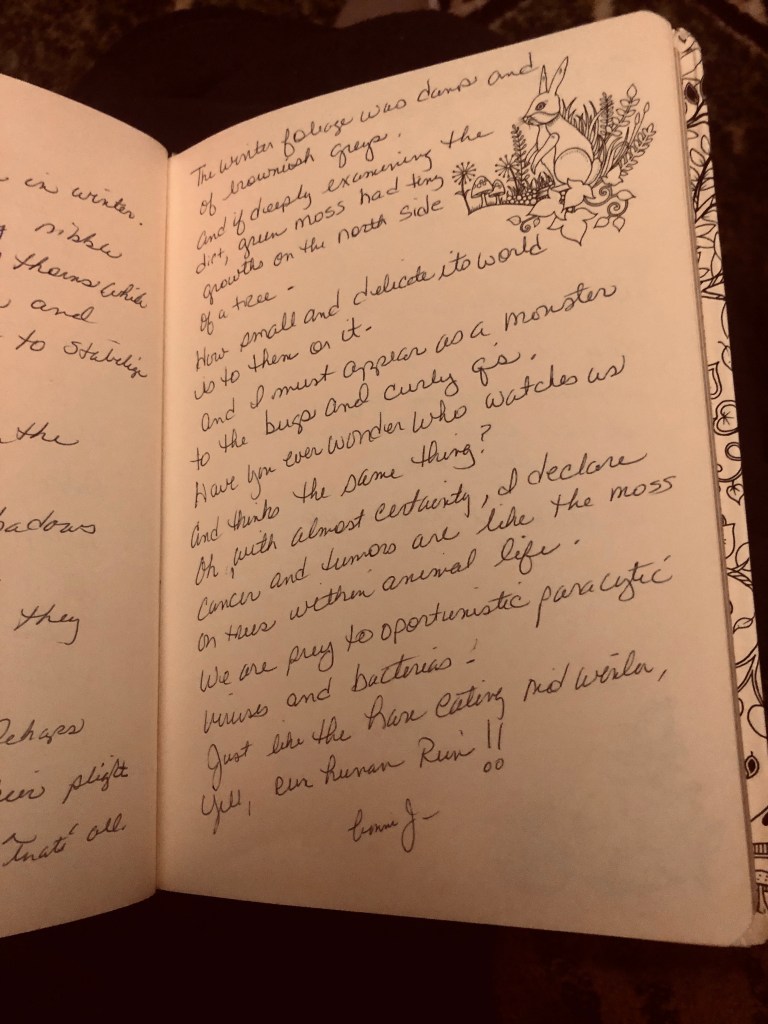 in winter.
nibble
thorns while
and
to stabelize
the
they
Perhaps
plight
"thats' all
The winter foliage was damp and
of brownish greys.
And if deeply examining the
dirt, green moss had tiny
growths on the north side
of a tree -
How small and delicate its world
is to them or it.
and I must appear as a monster
to the bugs and curly q's.
Have you ever wonder who watches us
and thinks the same thing?
Oh, with almost certainty, I declare
cancer and tumors are like the moss
on trees within animal life.
We are prey to oportunistic paracytic
viruses and bacterias!
Just like the hare eating mid winter,
Yell, our human Ruin!!
J-